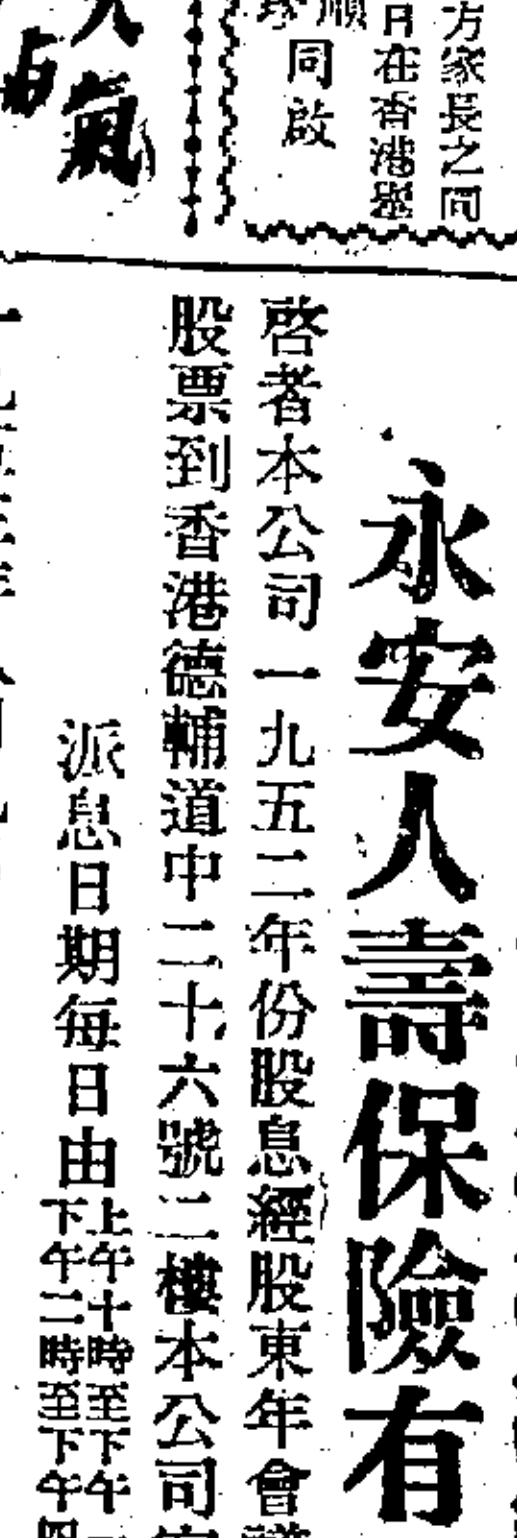 方家長之同
月在香港
順
同啟
人氣
永安人壽保險有
啓者本公司一九五二年份股息經股東年會議
股票到香港德輔道中二十六號二樓本公司
派息日期每日由
上午十時至下午一
下午二時至下午四